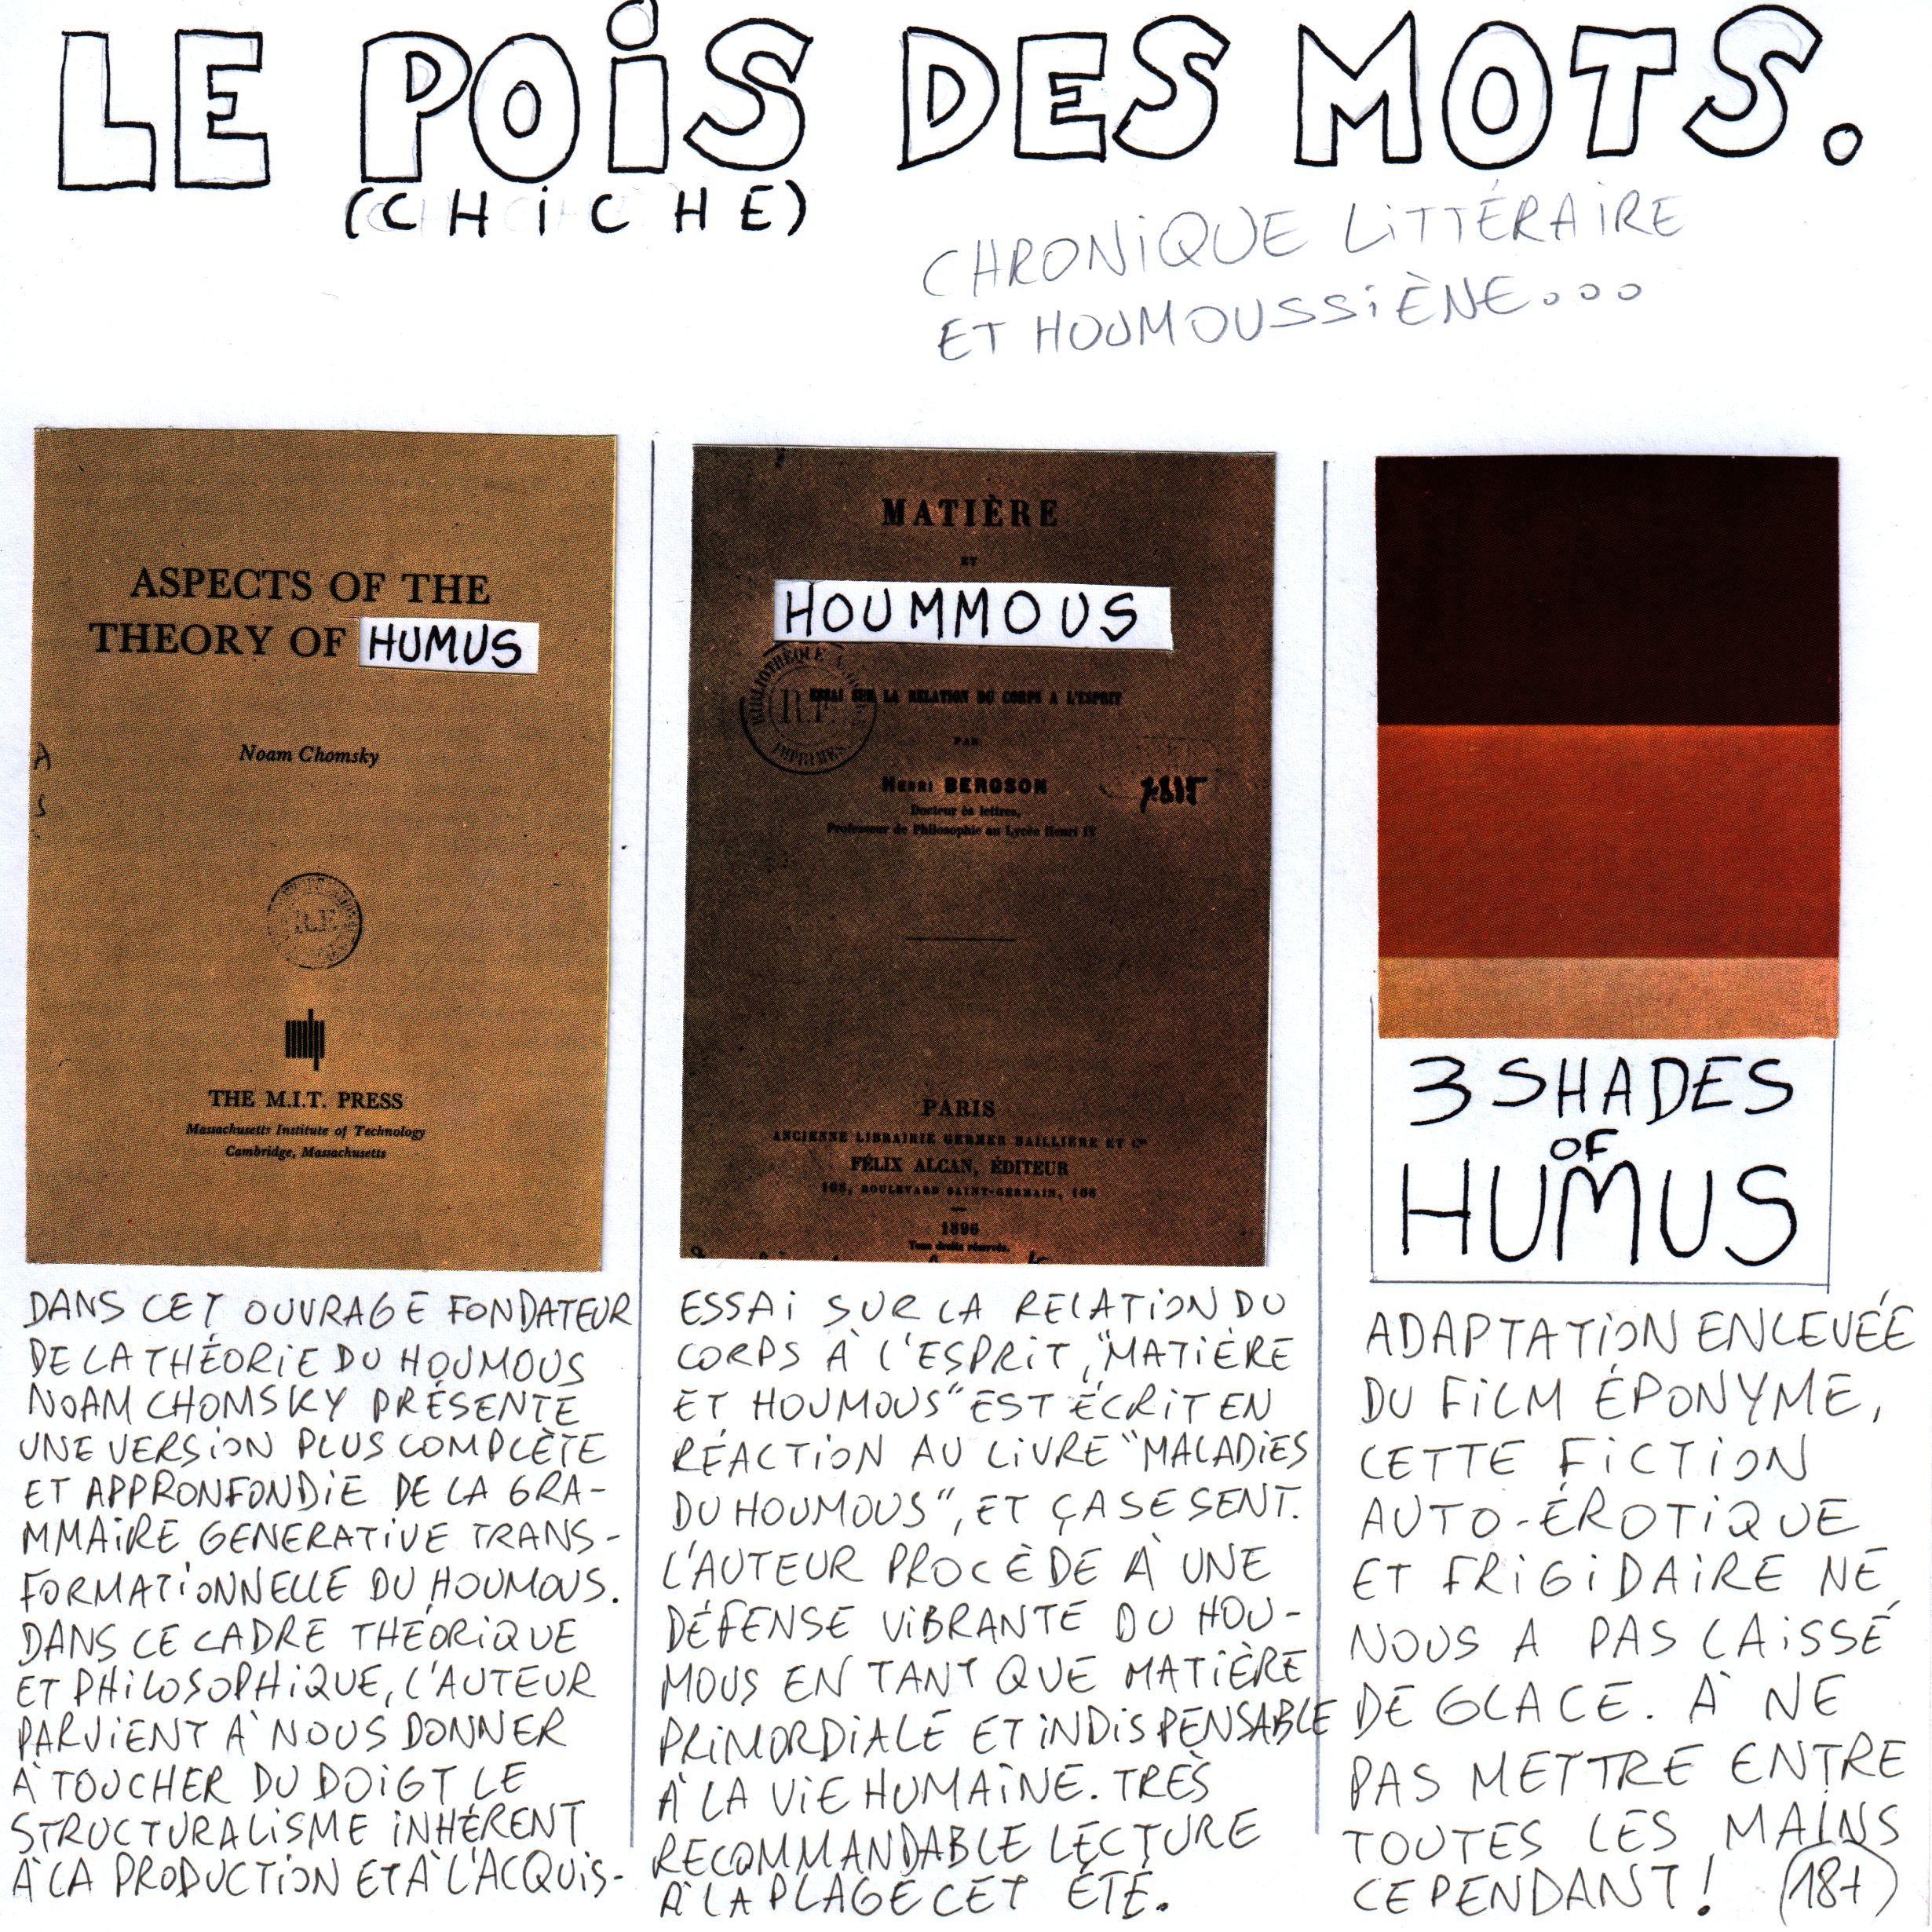 LE POiS DES MOTS.
(CHiCHE)
CHRONiQUE LiTTÉRAiRE
ET HOUMOUSSiÈNE...
ASPECTS OF THE
THEORY OF HUMUS
Noam Chomsky
R.F.
THE M.I.T. PRESS
Massachusetts Institute of Technology
Cambridge, Massachusetts
DANS CET OUVRAGE FONDATEUR
DE LA THÉORiE DU HOUMOUS
NOAM CHOMSKY PRÉSENTE
UNE VERSiON PLUS COMPLÈTE
ET APPRONFONDiE DE LA GRA-
MMAiRE GENERATiVE TRANS-
FORMATiONNELLE DU HOUMOUS.
DANS CE CADRE THÉORiQUE
ET PHiLOSOPHiQUE, L'AUTEUR
PARViENT À NOUS DONNER
À TOUCHER DU DOiGT LE
STRUCTURALiSME iNHÉRENT
À LA PRODUCTiON ET À L'ACQUiS-
MATIÈRE
ET
HOUMMOUS
BIBLIOTHÈQUE
R.F.
IMPRIMÉS
ESSAI SUR LA RELATION DU CORPS A L'ESPRIT
PAR
HENRI BERGSON
Docteur ès lettres,
Professeur de Philosophie au Lycée Henri IV
PARIS
ANCIENNE LIBRAIRIE GERMER BAILLIÈRE ET Cie
FÉLIX ALCAN, ÉDITEUR
108, BOULEVARD SAINT-GERMAIN, 108
1896
Tous droits réservés.
ESSAi SUR LA RELATiON DU
CORPS À L'ESPRiT, "MATiÈRE
ET HOUMOUS" EST ÉCRiT EN
RÉACTiON AU LiVRE "MALADiES
DU HOUMOUS", ET ÇA SE SENT.
L'AUTEUR PROCÈDE À UNE
DÉFENSE ViBRANTE DU HOU-
MOUS EN TANT QUE MATiÈRE
PRiMORDiALE ET iNDiSPENSABLE
À LA ViE HUMAiNE. TRÈS
RECOMMANDABLE LECTURE
À LA PLAGE CET ÉTÉ.
3 SHADES
OF
HUMUS
ADAPTATiON ENLEVÉE
DU FiLM ÉPONYME,
CETTE FiCTiON
AUTO-ÉROTiQUE
ET FRiGiDAiRE NE
NOUS A PAS LAiSSÉ
DE GLACE. À NE
PAS METTRE ENTRE
TOUTES LES MAiNS
CEPENDANT! (18+)